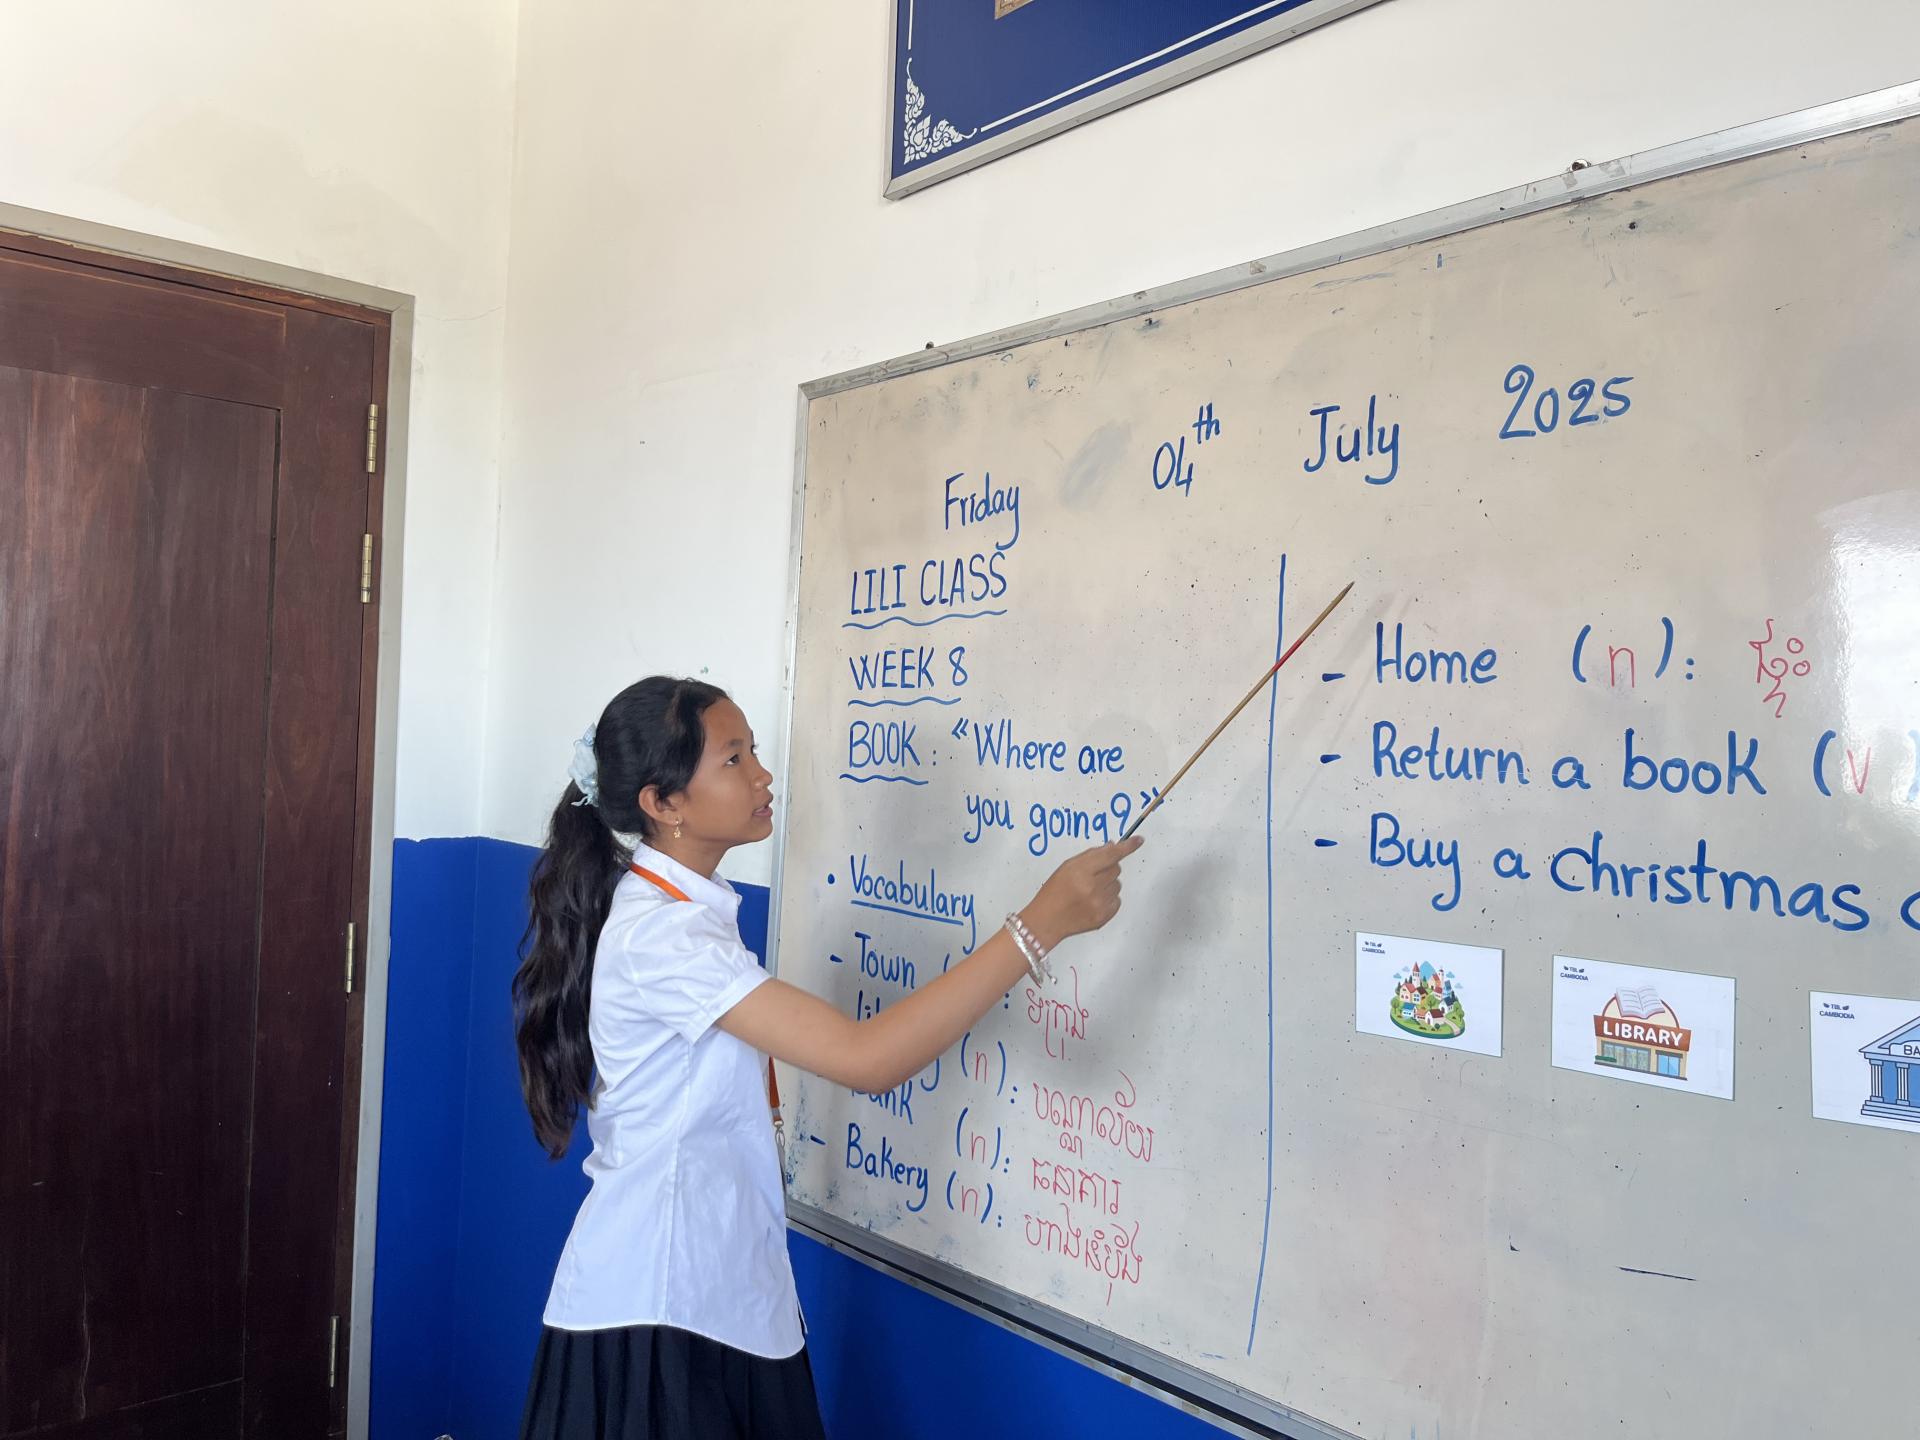 Friday 04th July 2025
LILI CLASS
WEEK 8
BOOK: “Where are
you going?”
• Vocabulary
- Town ( : ទីក្រុង
(n): បណ្ណាល័យ
(n): ធនាគារ
- Bakery (n): ហាងនំប៉័ង
- Home (n): ផ្ទះ
- Return a book (v)
- Buy a Christmas
TBL
CAMBODIA
TBL
CAMBODIA
LIBRARY
TBL
CAMBODIA